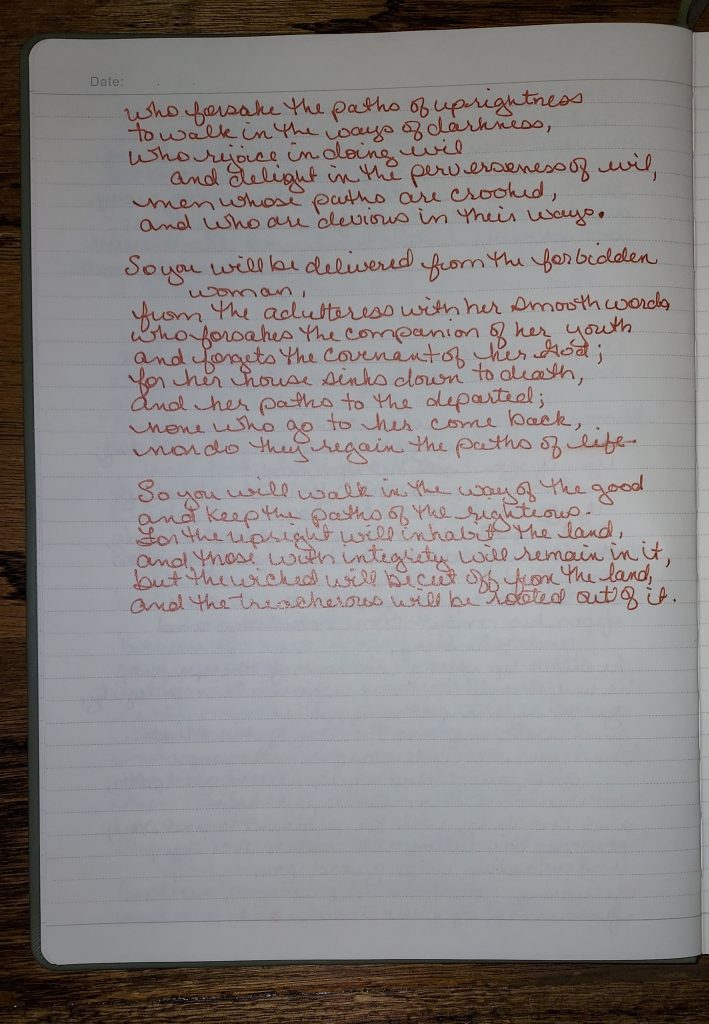 Date:
who forsake the paths of uprightness
to walk in the ways of darkness,
who rejoice in doing evil
and delight in the perverseness of evil,
men whose paths are crooked,
and who are devious in their ways.
So you will be delivered from the forbidden
woman,
from the adulteress with her smooth words,
who forsakes the companion of her youth
and forgets the covenant of her God;
for her house sinks down to death,
and her paths to the departed;
none who go to her come back,
nor do they regain the paths of life.
So you will walk in the way of the good
and keep the paths of the righteous.
For the upright will inhabit the land,
and those with integrity will remain in it,
but the wicked will be cut off from the land,
and the treacherous will be rooted out of it.